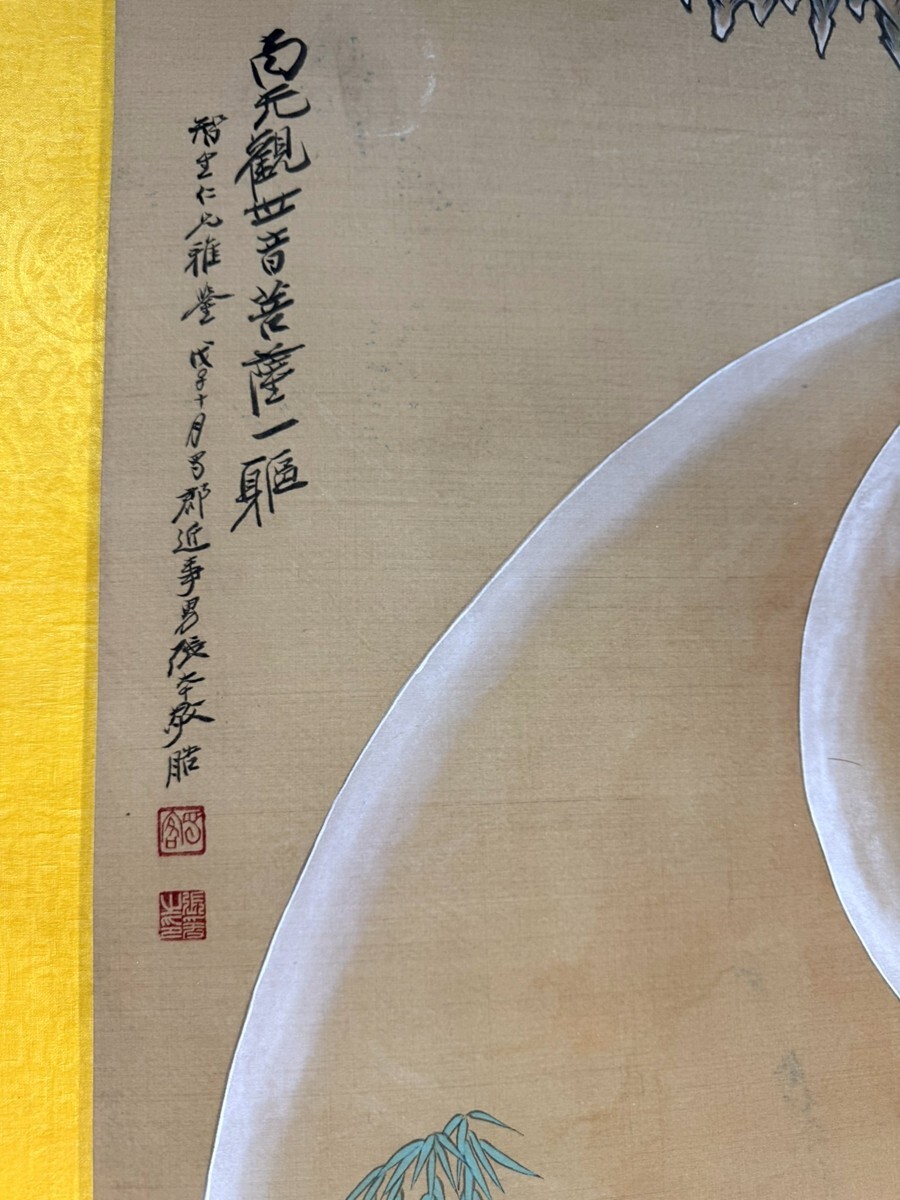 南无觀世音菩薩一軀
智生仁兄雅鑒 戊子十月蜀郡近事男張大千敬脂
張爰之印